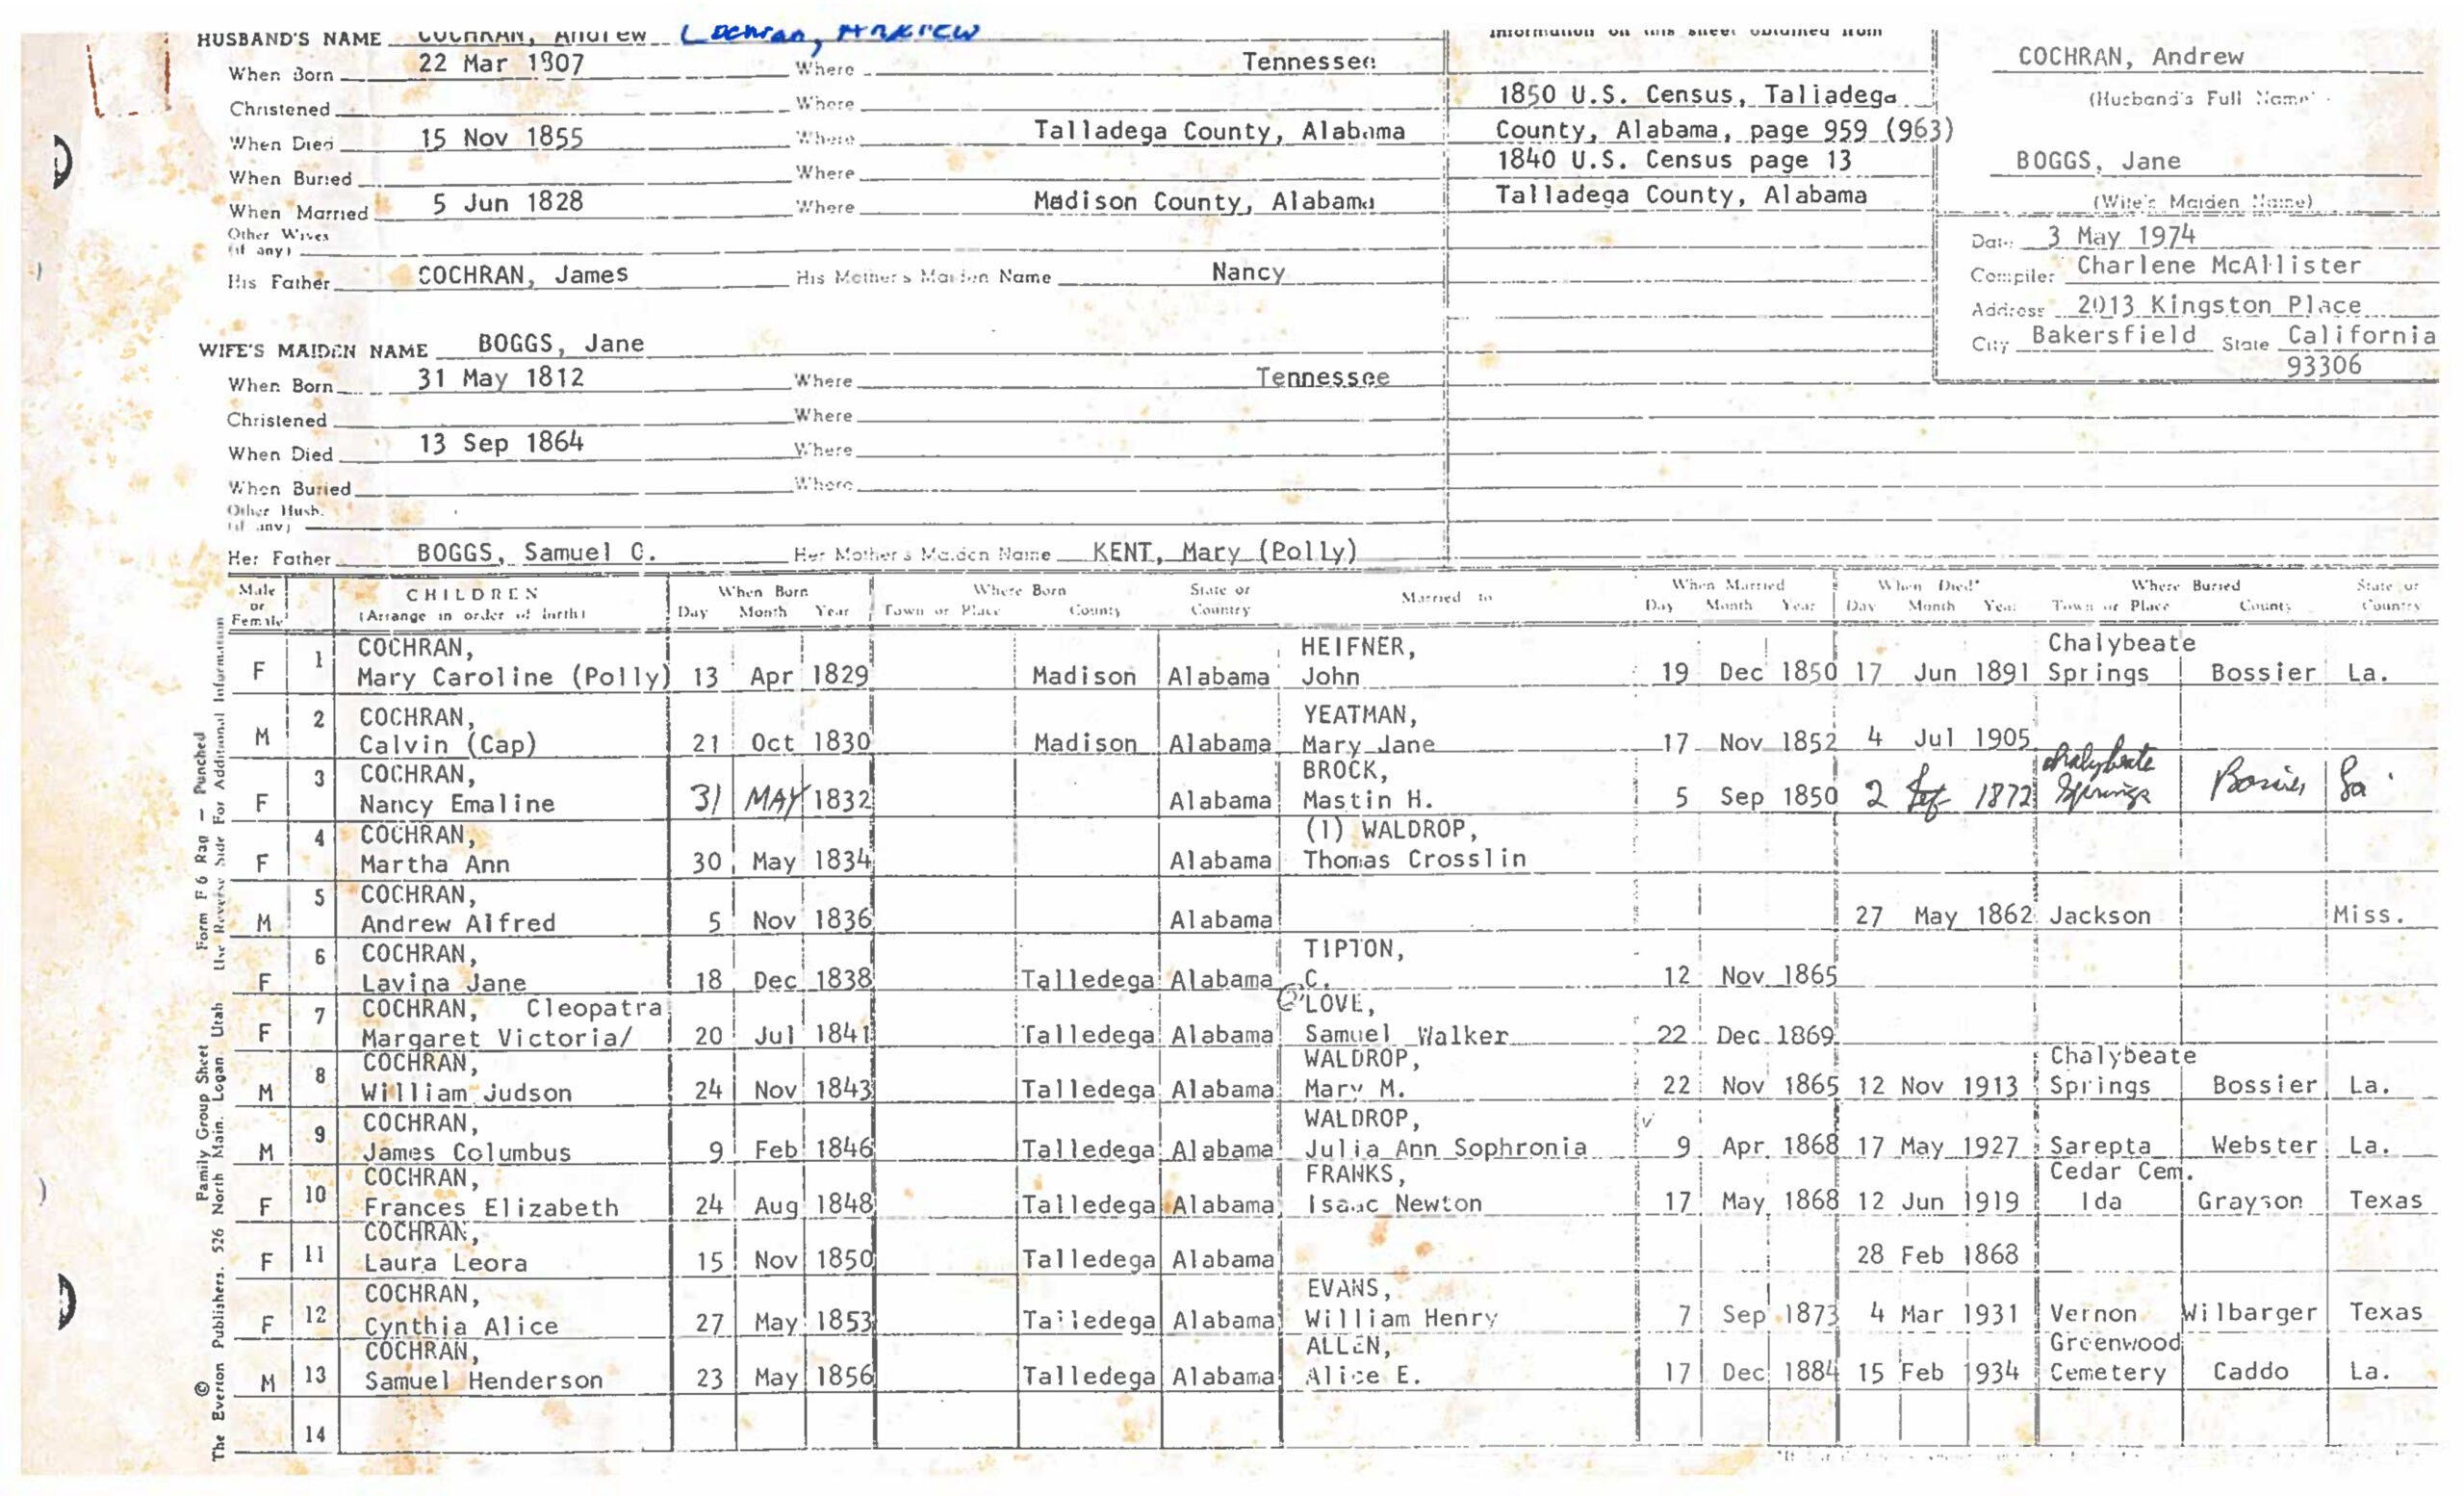 HUSBAND'S NAME COCHRAN, Andrew Cochran, Andrew
When Born 22 Mar 1807 Where Tennessee
Christened Where
When Died 15 Nov 1855 Where Talladega County, Alabama
When Buried Where
When Married 5 Jun 1828 Where Madison County, Alabama
Other Wives
(if any)
His Father COCHRAN, James His Mother's Maiden Name Nancy
WIFE'S MAIDEN NAME BOGGS, Jane
When Born 31 May 1812 Where Tennessee
Christened Where
When Died 13 Sep 1864 Where
When Buried Where
Other Husb.
(if any)
Her Father BOGGS, Samuel O. Her Mother's Maiden Name KENT, Mary (Polly)
Information on this sheet obtained from
1850 U.S. Census, Talladega
County, Alabama, page 959 (963)
1840 U.S. Census page 13
Talladega County, Alabama
COCHRAN, Andrew
(Husband's Full Name)
BOGGS, Jane
(Wife's Maiden Name)
Date 3 May 1974
Compiler Charlene McAllister
Address 2013 Kingston Place
City Bakersfield State California
93306
Male CHILDREN When Born Where Born State or Married to When Married When Died* Where Buried State or
or (Arrange in order of birth) Day Month Year Town or Place County Country Day Month Year Day Month Year Town or Place County Country
Female
COCHRAN, HEIFNER, Chalybeate
F 1 Mary Caroline (Polly) 13 Apr 1829 Madison Alabama John 19 Dec 1850 17 Jun 1891 Springs Bossier La.
COCHRAN, YEATMAN,
M 2 Calvin (Cap) 21 Oct 1830 Madison Alabama Mary Jane 17 Nov 1852 4 Jul 1905
COCHRAN, BROCK, Chalybeate
F 3 Nancy Emaline 31 MAY 1832 Alabama Mastin H. 5 Sep 1850 2 Sep 1872 Springs Bossier La.
COCHRAN, (1) WALDROP,
F 4 Martha Ann 30 May 1834 Alabama Thomas Crosslin
COCHRAN,
M 5 Andrew Alfred 5 Nov 1836 Alabama 27 May 1862 Jackson Miss.
COCHRAN, TIPTON,
F 6 Lavina Jane 18 Dec 1838 Talledega Alabama C. 12 Nov 1865
COCHRAN, Cleopatra (2) LOVE,
F 7 Margaret Victoria/ 20 Jul 1841 Talledega Alabama Samuel Walker 22 Dec 1869
COCHRAN, WALDROP, Chalybeate
M 8 William Judson 24 Nov 1843 Talledega Alabama Mary M. 22 Nov 1865 12 Nov 1913 Springs Bossier La.
COCHRAN, WALDROP,
M 9 James Columbus 9 Feb 1846 Talledega Alabama Julia Ann Sophronia 9 Apr 1868 17 May 1927 Sarepta Webster La.
COCHRAN, FRANKS, Cedar Cem.
F 10 Frances Elizabeth 24 Aug 1848 Talledega Alabama Isaac Newton 17 May 1868 12 Jun 1919 Ida Grayson Texas
COCHRAN,
F 11 Laura Leora 15 Nov 1850 Talledega Alabama 28 Feb 1868
COCHRAN, EVANS,
F 12 Cynthia Alice 27 May 1853 Talledega Alabama William Henry 7 Sep 1873 4 Mar 1931 Vernon Wilbarger Texas
COCHRAN, ALLEN, Greenwood
M 13 Samuel Henderson 23 May 1856 Talledega Alabama Alice E. 17 Dec 1884 15 Feb 1934 Cemetery Caddo La.
14
© Family Group Sheet Form F6 Rag — Punched
The Everton Publishers. 526 North Main. Logan Utah Use Reverse Side For Additional Information